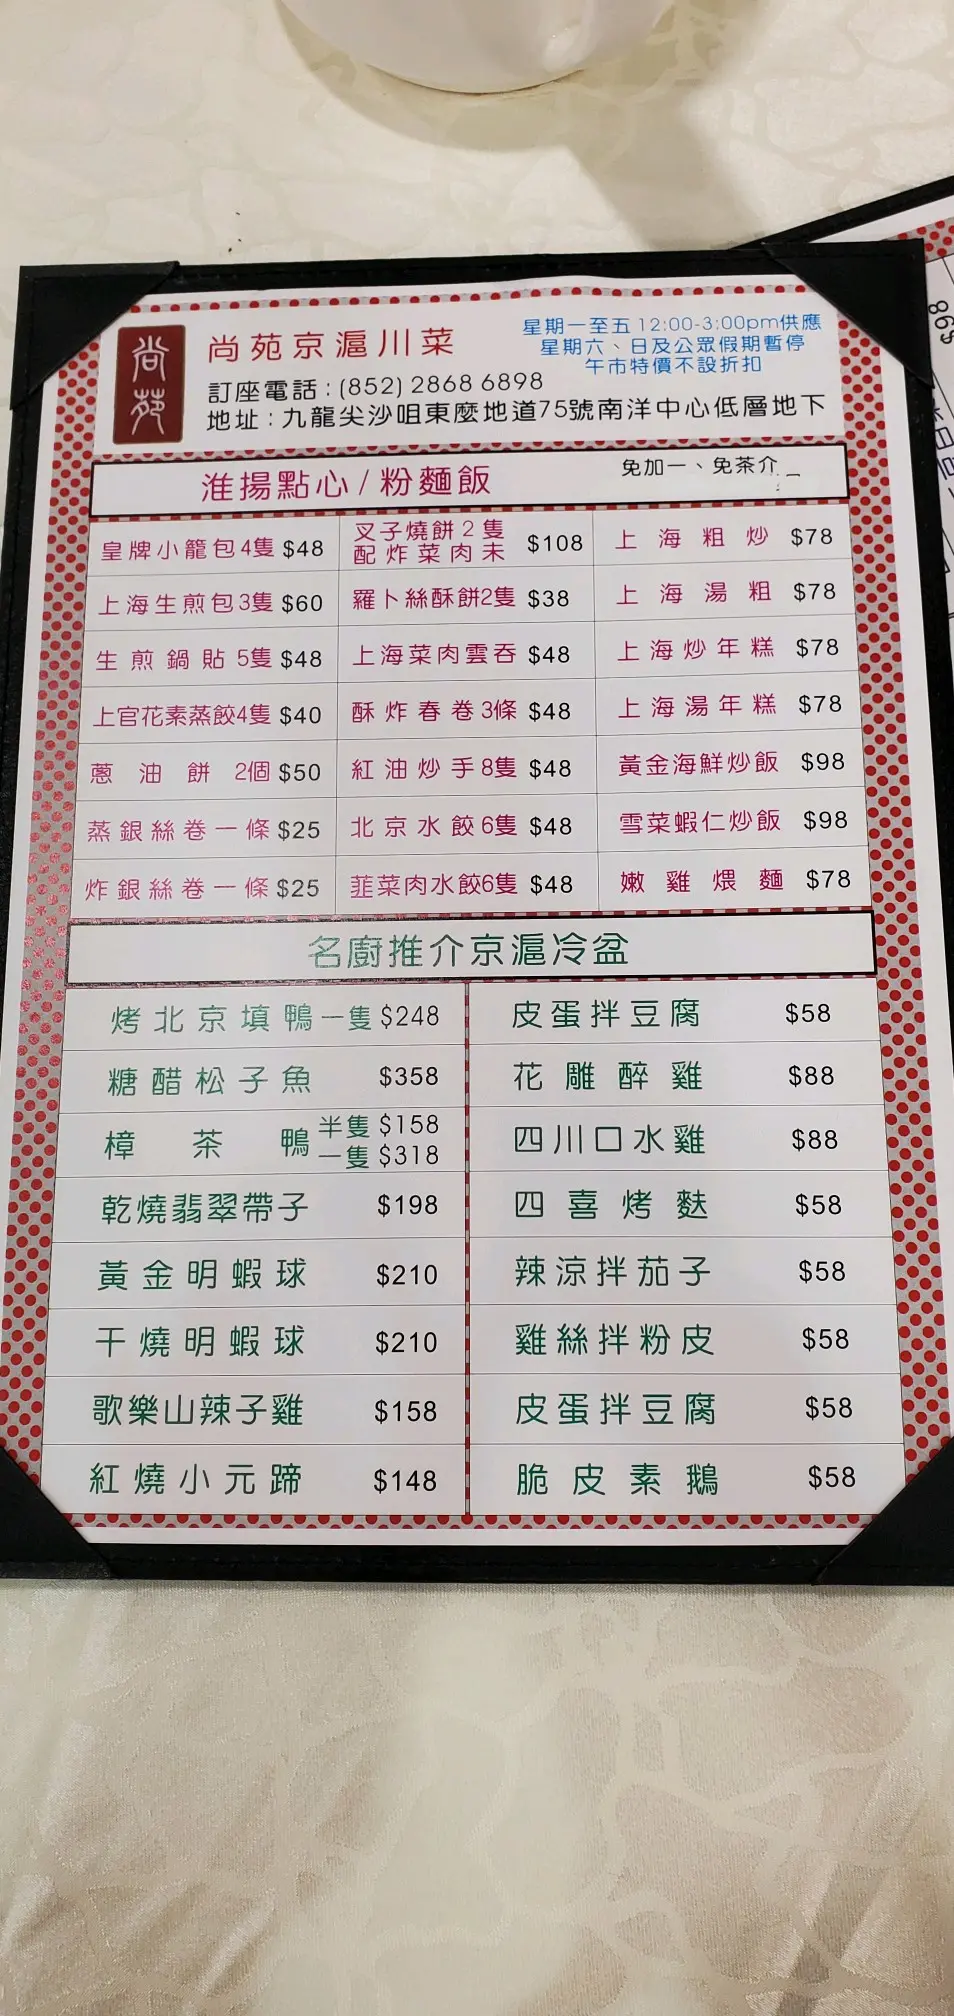 尚苑
尚苑京滬川菜
星期一至五 12:00-3:00pm供應
星期六、日及公眾假期暫停
午市特價不設折扣
訂座電話 : (852) 2868 6898
地址 : 九龍尖沙咀東麼地道75號南洋中心低層地下
淮揚點心 / 粉麵飯
免加一、免茶介
皇牌小籠包4隻 $48
叉子燒餅2隻
配炸菜肉末 $108
上海粗炒 $78
上海生煎包3隻 $60
羅卜絲酥餅2隻 $38
上海湯粗 $78
生煎鍋貼 5隻 $48
上海菜肉雲吞 $48
上海炒年糕 $78
上官花素蒸餃4隻 $40
酥炸春卷3條 $48
上海湯年糕 $78
蔥油餅 2個 $50
紅油炒手8隻 $48
黃金海鮮炒飯 $98
蒸銀絲卷一條 $25
北京水餃6隻 $48
雪菜蝦仁炒飯 $98
炸銀絲卷一條 $25
韮菜肉水餃6隻 $48
嫩雞煨麵 $78
名廚推介京滬冷盆
烤北京填鴨一隻 $248
皮蛋拌豆腐 $58
糖醋松子魚 $358
花雕醉雞 $88
樟茶鴨 半隻 $158
一隻 $318
四川口水雞 $88
乾燒翡翠帶子 $198
四喜烤麩 $58
黃金明蝦球 $210
辣涼拌茄子 $58
干燒明蝦球 $210
雞絲拌粉皮 $58
歌樂山辣子雞 $158
皮蛋拌豆腐 $58
紅燒小元蹄 $148
脆皮素鵝 $58